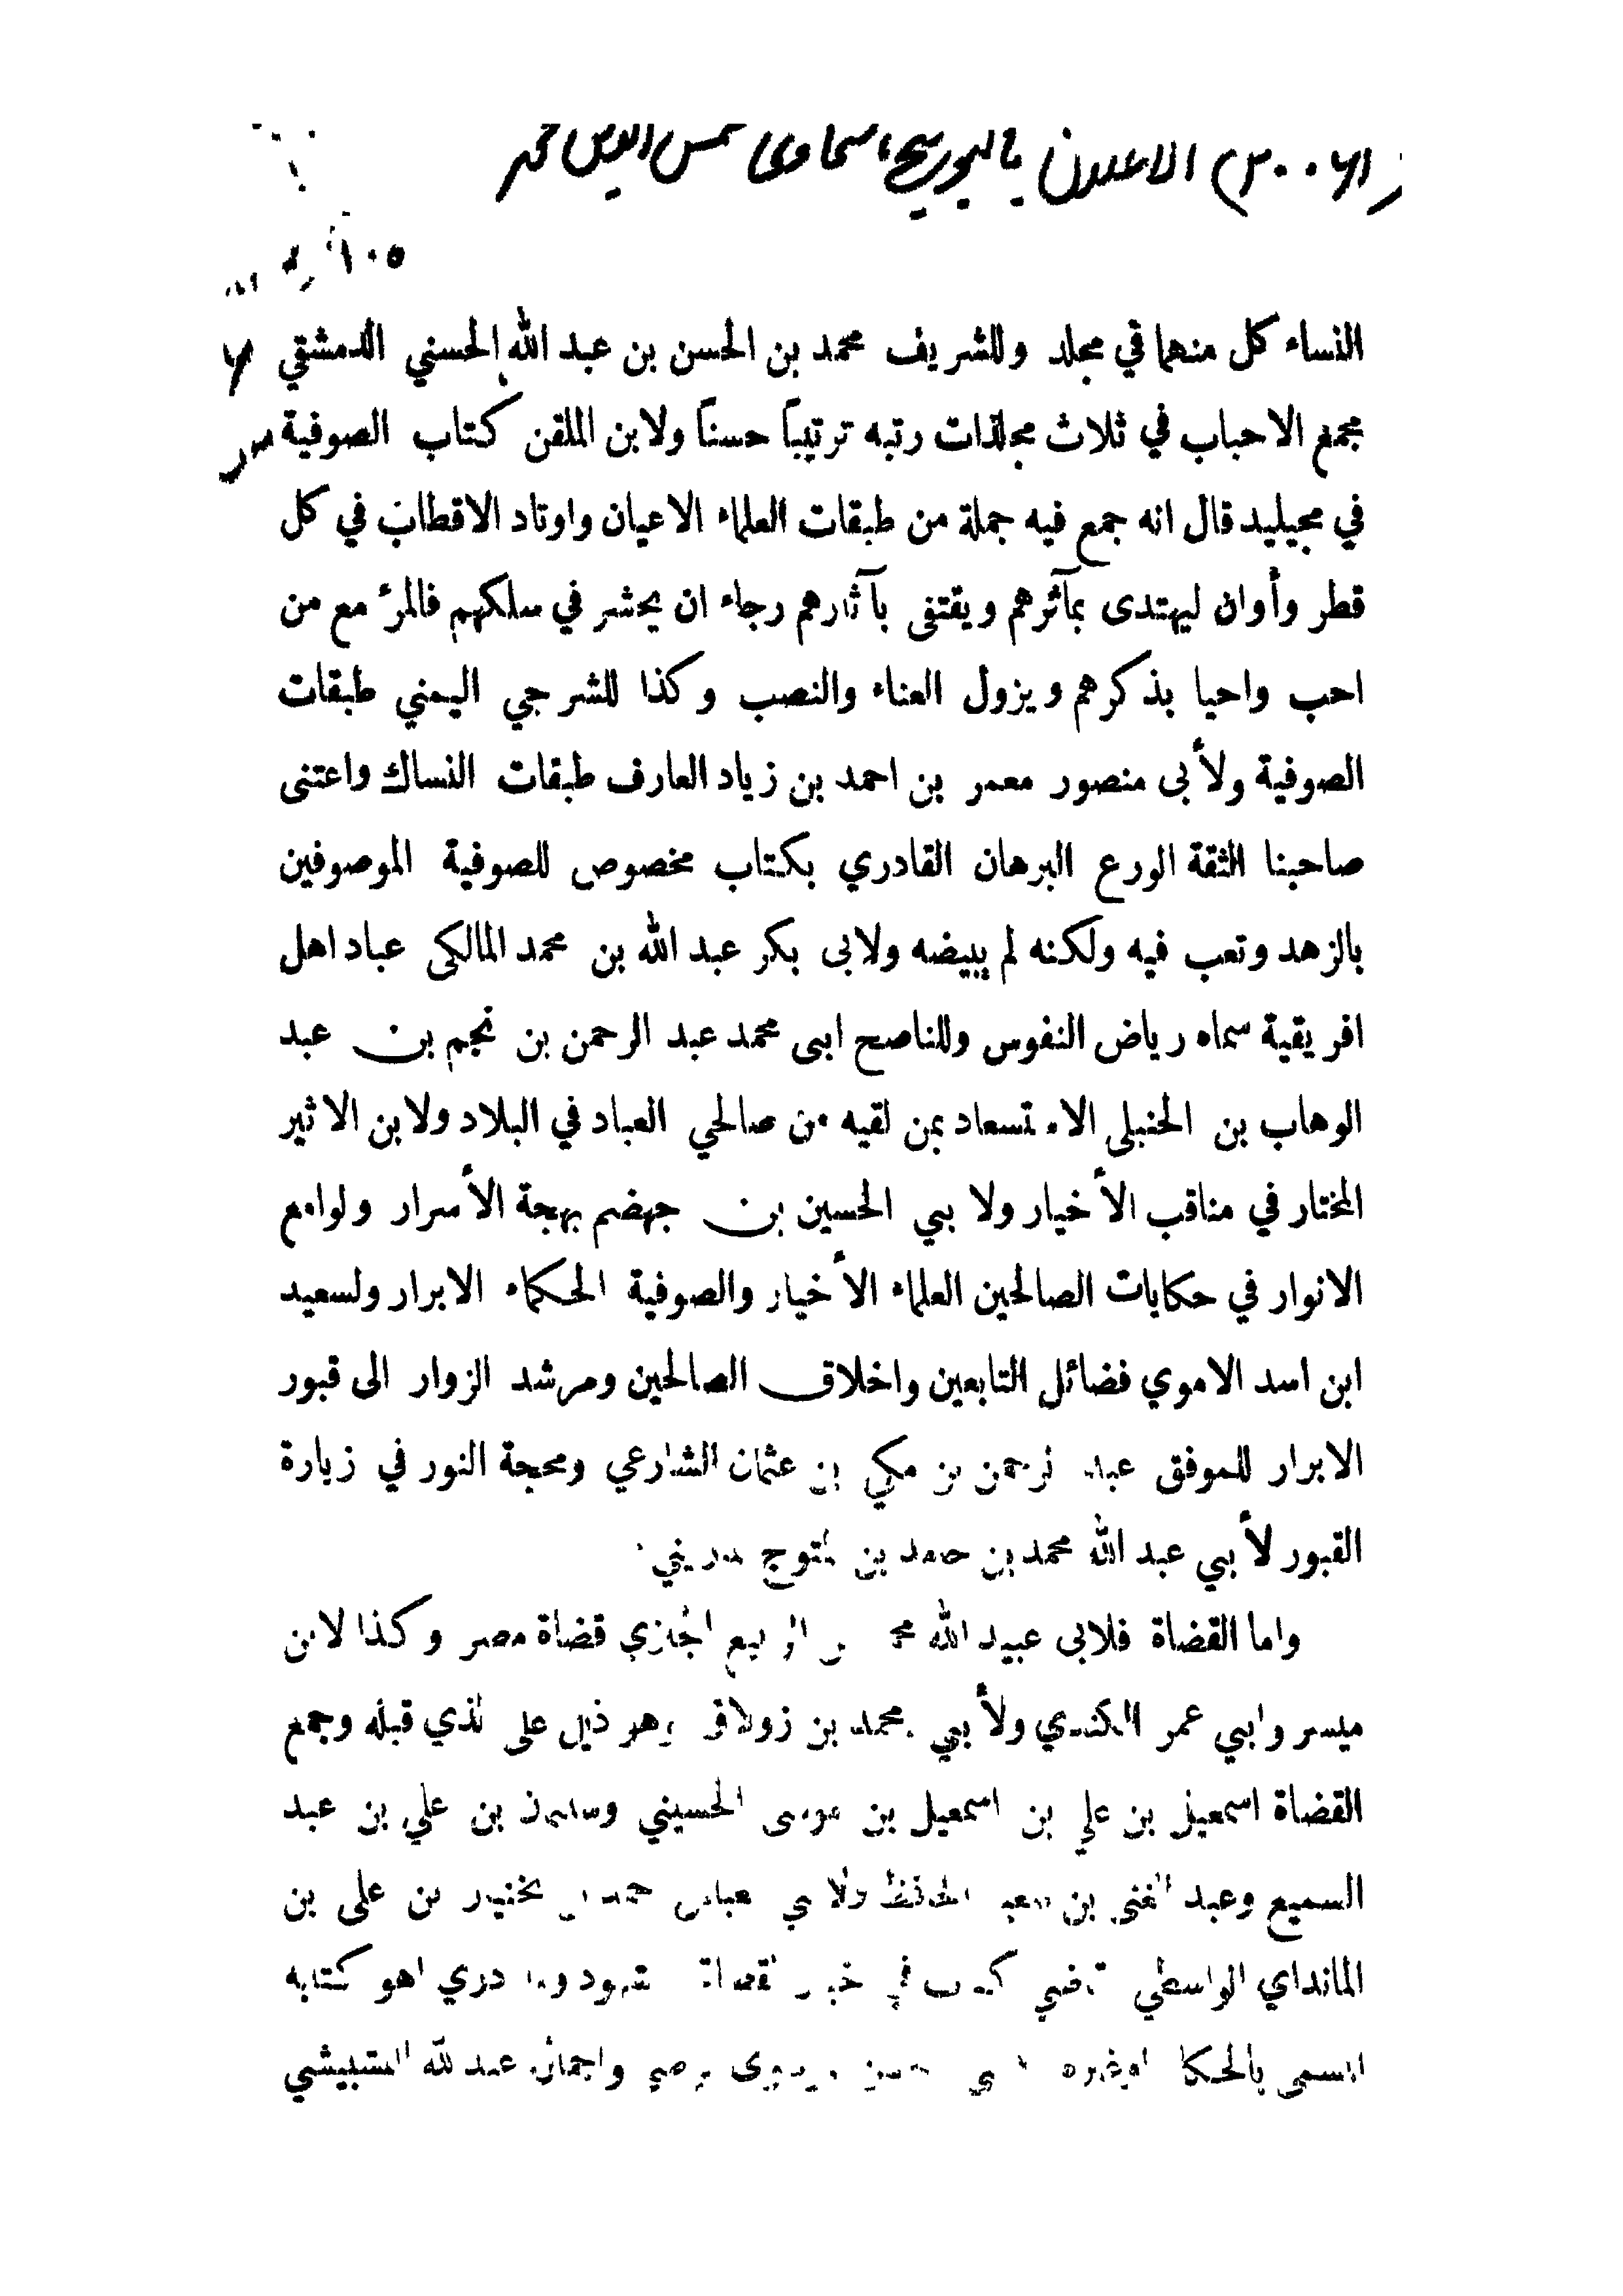 الاعلان بالتوريخ سخاوى شمس الدين محمد
١٠٥
النساء كل منهما في مجلد وللشريف محمد بن الحسن بن عبد الله الحسني الدمشقي
مجمع الاحباب في ثلاث مجلدات رتبه ترتيباً حسناً ولابن الملقن كتاب الصوفية
في مجيليد قال انه جمع فيه جملة من طبقات العلماء الاعيان واوتاد الاقطاب في كل
قطر وأوان ليهتدى بمآثرهم ويقتفى بآثارهم رجاء ان يحشر في سلكهم فالمرء مع من
احب واحيا بذكرهم ويزول العناء والنصب وكذا للشرجي اليمني طبقات
الصوفية ولأبى منصور معمر بن احمد بن زياد العارف طبقات النساك واعتنى
صاحبنا الثقة الورع البرهان القادري بكتاب مخصوص للصوفية الموصوفين
بالزهد وتعب فيه ولكنه لم يبيضه ولابى بكر عبد الله بن محمد المالكى عباد اهل
افريقية سماه رياض النفوس وللناصح ابى محمد عبد الرحمن بن نجم بن عبد
الوهاب بن الحنبلى الاستسعاد بمن لقيه من صالحي العباد في البلاد ولابن الاثير
المختار في مناقب الأخيار ولابي الحسين بن جهضم بهجة الأسرار ولوامع
الانوار في حكايات الصالحين العلماء الأخيار والصوفية الحكماء الابرار ولسعيد
ابن اسد الاموي فضائل التابعين واخلاق الصالحين ومرشد الزوار الى قبور
الابرار للموفق عبد الرحمن بن مكي بن عثمان الشارعي ومحجة النور في زيارة
القبور لأبي عبد الله محمد بن حامد بن المتوج
واما القضاة فلابى عبيد الله محمد بن الربيع الجيزي قضاة مصر وكذا لابن
ميسر وابي عمر الكندي ولأبي محمد بن زولاق وهو ذيل على الذي قبله وجمع
القضاة اسمعيل بن علي بن اسمعيل بن موسى الحسيني وسليمان بن علي بن عبد
السميع وعبد الغنى بن سعيد الحافظ ولابي العباس احمد بن بختيار بن على بن
الماندائي الواسطي قاضي كتاب في اخبار القضاة الشهود وما ادري اهو كتابه
المسمى بالحكام اوغيره واجمال عبد الله البشبيشي